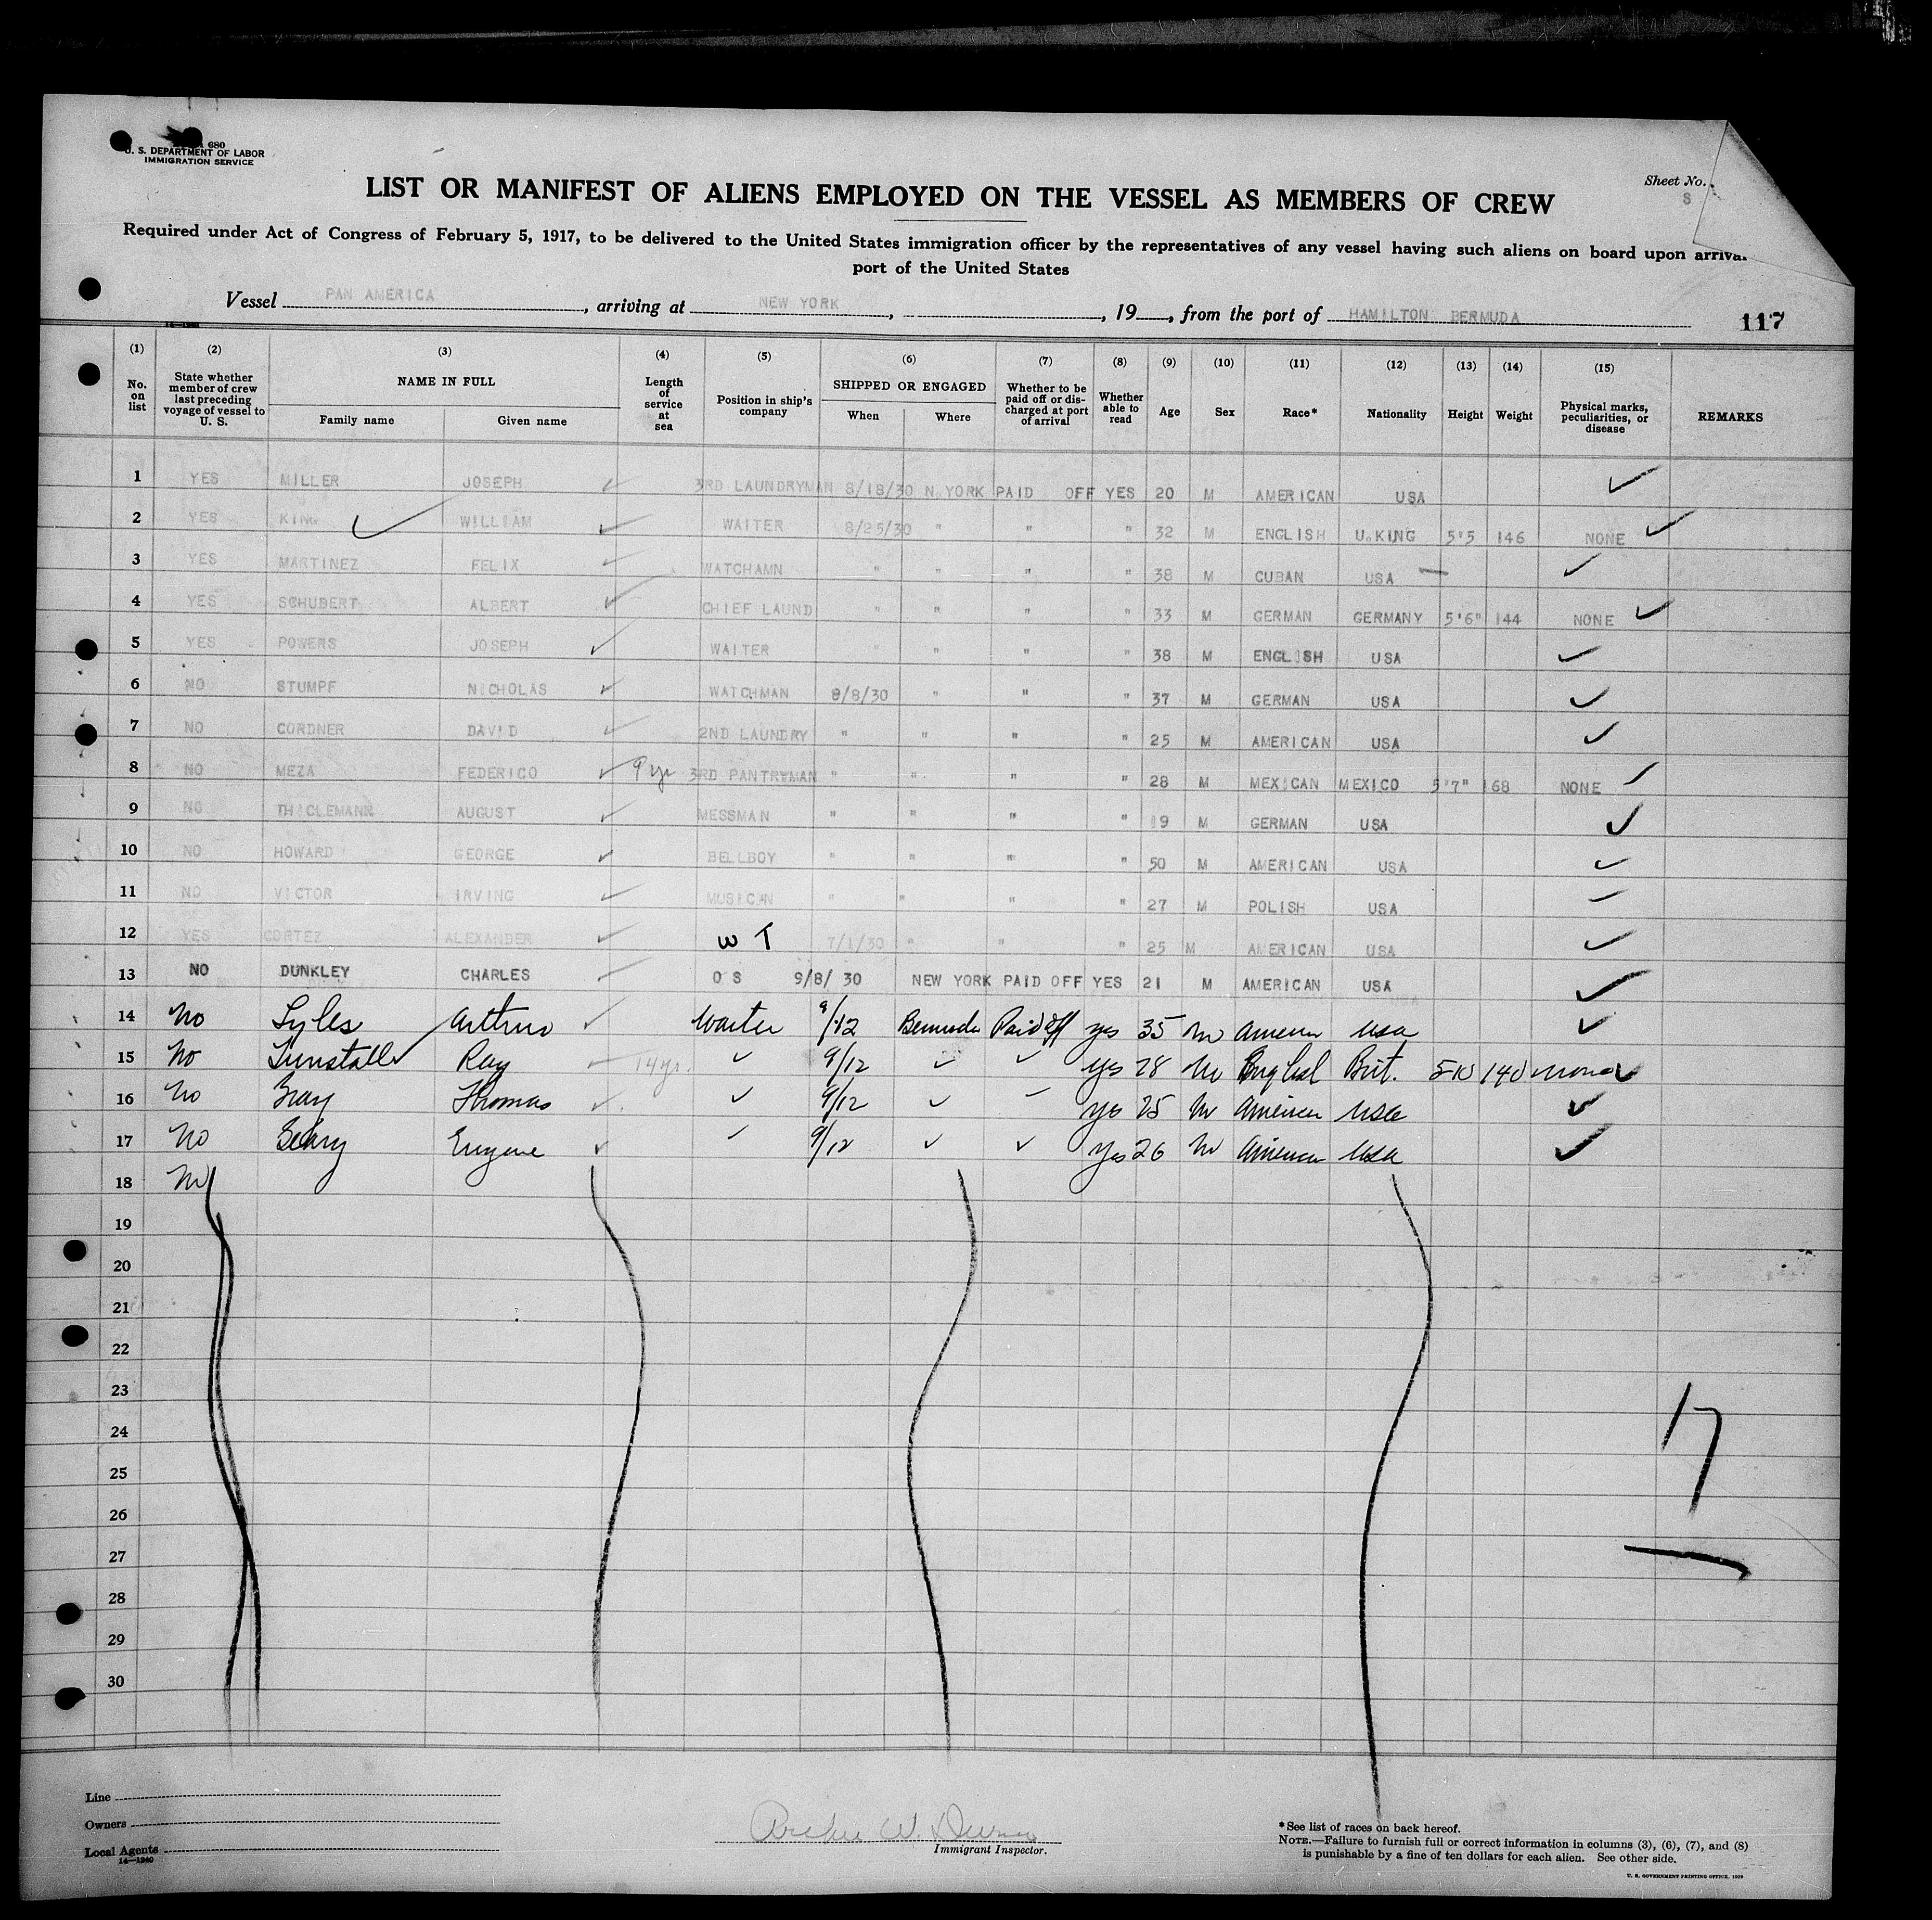 680
U. S. DEPARTMENT OF LABOR
IMMIGRATION SERVICE
Sheet No.
S
LIST OR MANIFEST OF ALIENS EMPLOYED ON THE VESSEL AS MEMBERS OF CREW
Required under Act of Congress of February 5, 1917, to be delivered to the United States immigration officer by the representatives of any vessel having such aliens on board upon arrival
port of the United States
Vessel PAN AMERICA, arriving at NEW YORK, , 19 , from the port of HAMILTON BERMUDA 117
(1) (2) (3) (4) (5) (6) (7) (8) (9) (10) (11) (12) (13) (14) (15)
No. on list State whether member of crew last preceding voyage of vessel to U. S. NAME IN FULL Family name Given name Length of service at sea Position in ship's company SHIPPED OR ENGAGED When Where Whether to be paid off or discharged at port of arrival Whether able to read Age Sex Race* Nationality Height Weight Physical marks, peculiarities, or disease REMARKS
1 YES MILLER JOSEPH 3RD LAUNDRYMAN 8/18/30 N.YORK PAID OFF YES 20 M AMERICAN USA
2 YES KING WILLIAM WAITER 8/25/30 " " " 32 M ENGLISH U.KING 5'5 146 NONE
3 YES MARTINEZ FELIX WATCHAMN " " " " 38 M CUBAN USA
4 YES SCHUBERT ALBERT CHIEF LAUND " " " " 33 M GERMAN GERMANY 5'6" 144 NONE
5 YES POWERS JOSEPH WAITER " " " " 38 M ENGLISH USA
6 NO STUMPF NICHOLAS WATCHMAN 9/8/30 " " " 37 M GERMAN USA
7 NO CORDNER DAVID 2ND LAUNDRY " " " " 25 M AMERICAN USA
8 NO MEZA FEDERICO 9 yr 3RD PANTRYMAN " " " " 28 M MEXICAN MEXICO 5'7" 168 NONE
9 NO THICLEMANN AUGUST MESSMAN " " " " 19 M GERMAN USA
10 NO HOWARD GEORGE BELLBOY " " " " 50 M AMERICAN USA
11 NO VICTOR IRVING MUSICAN " " " " 27 M POLISH USA
12 YES CORTEZ ALEXANDER W T 7/1/30 " " " 25 M AMERICAN USA
13 NO DUNKLEY CHARLES O S 9/8/ 30 NEW YORK PAID OFF YES 21 M AMERICAN USA
14 No Lyles Arthur Waiter 9/12 Bermuda Paid off yes 35 M American USA
15 No Tunstall Ray 14 yr. 9/12 yes 28 M English Brit. 5 10 140 none
16 No Gray Thomas 9/12 yes 25 M American USA
17 No Geary Eugene 9/12 yes 26 M American USA
18 No
19
20
21
22
23
24
25
26
27
28
29
30
17
Line
Owners
Local Agents
14—1240
Immigrant Inspector.
*See list of races on back hereof.
NOTE.—Failure to furnish full or correct information in columns (3), (6), (7), and (8)
is punishable by a fine of ten dollars for each alien. See other side.
U. S. GOVERNMENT PRINTING OFFICE: 1929